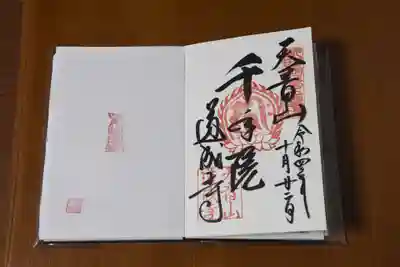 天音山
令和四年
十月廿二日
千手院
道成寺